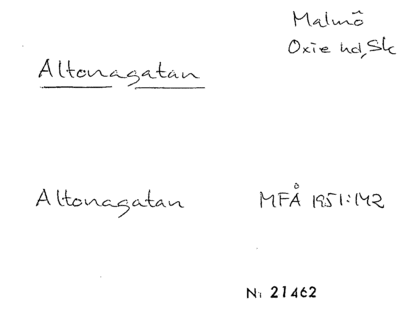 Malmö
Oxie hd, Sk
Altonagatan
Altonagatan MFÅ 1951:142
N: 21462